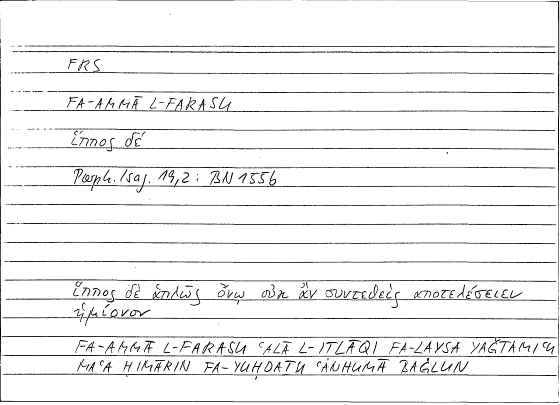 FRS
FA-AMMĀ L-FARASU
ἵππος δέ
Porph. Isag. 19,2 : BN 155b
ἵππος δὲ ἁπλῶς ὄνῳ οὐκ ἂν συντεθεὶς ἀποτελέσειεν
ἡμίονον
FA-AMMĀ L-FARASU ʿALĀ L-ITLĀQI FA-LAYSA YAǦTAMIʿU
MAʿA HIMĀRIN FA-YUHDATU ʿANHUMĀ BAĠLUN